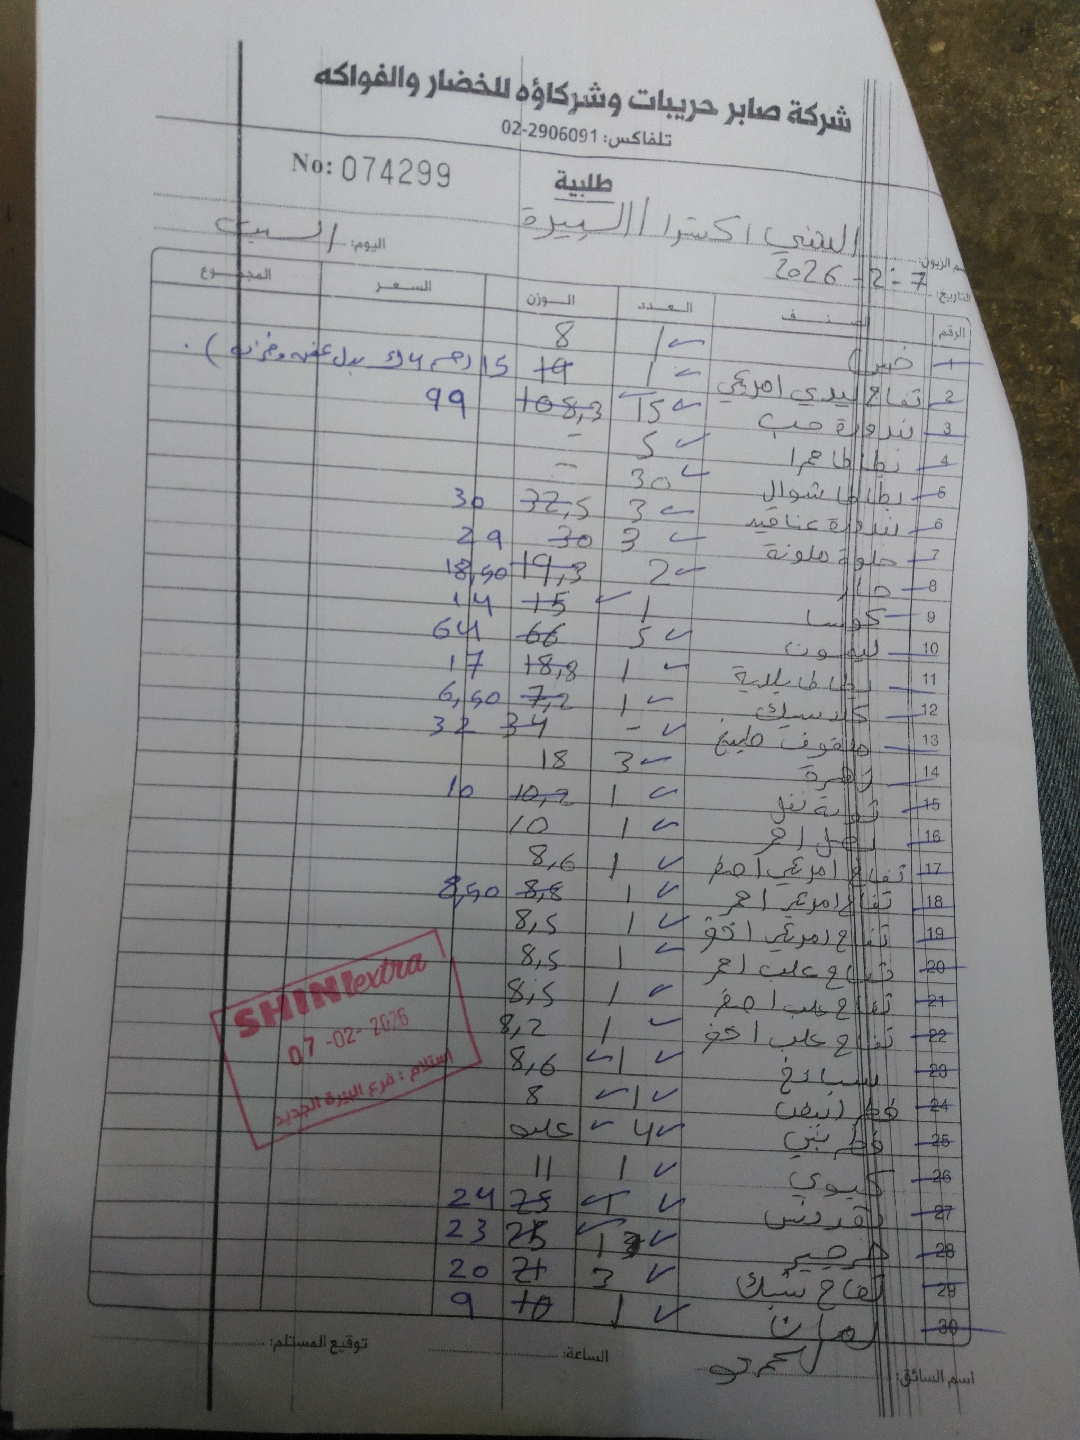 شركة صابر حريبات وشركاؤه للخضار والفواكه
تلفاكس: 2906091-02
No: 074299
طلبية
اسم الزبون: الشني اكسترا / البيرة
اليوم: السبت
التاريخ: 7-2-2026
الرقم الصنف العدد الوزن السعر المجموع
1 خس 1 8
2 تفاح ليدي امريكي 1 19 15
3 بندورة حب 15 108,3 99
4 بطاطا حمرا 5 -
5 بطاطا شوال 30 -
6 بندورة عناقيد 3 32,5 30
7 حلوة ملونة 3 30 29
8 خيار 2 19,3 18,50
9 كوسا 1 15 14
10 ليمون 5 66 64
11 بطاطا بلدية 1 18,8 17
12 كلاسيك 1 7,2 6,50
13 ملفوف طبيخ - 34 32
14 زهرة 3 18
15 1 10,2 10
16 بصل احمر 1 10
17 تفاح امريكي اصفر 1 8,6
18 تفاح امريكي احمر 1 8,8 8,50
19 تفاح امريكي اخضر 1 8,5
20 تفاح علب احمر 1 8,5
21 تفاح علب اصفر 1 8,5
22 تفاح علب اخضر 1 8,2
23 سبانخ 1 8,6
24 فطر ابيض 1 8
25 فطر بني 4 علبه
26 كيوي 1 11
27 بقدونس 1 25 24
28 جرجير 1 25 23
29 تفاح شبك 3 21 20
30 رمان 1 10 9
SHINI extra
07-02-2026
استلام : فرع البيرة الجديد
اسم السائق:
الساعة:
توقيع المستلم: